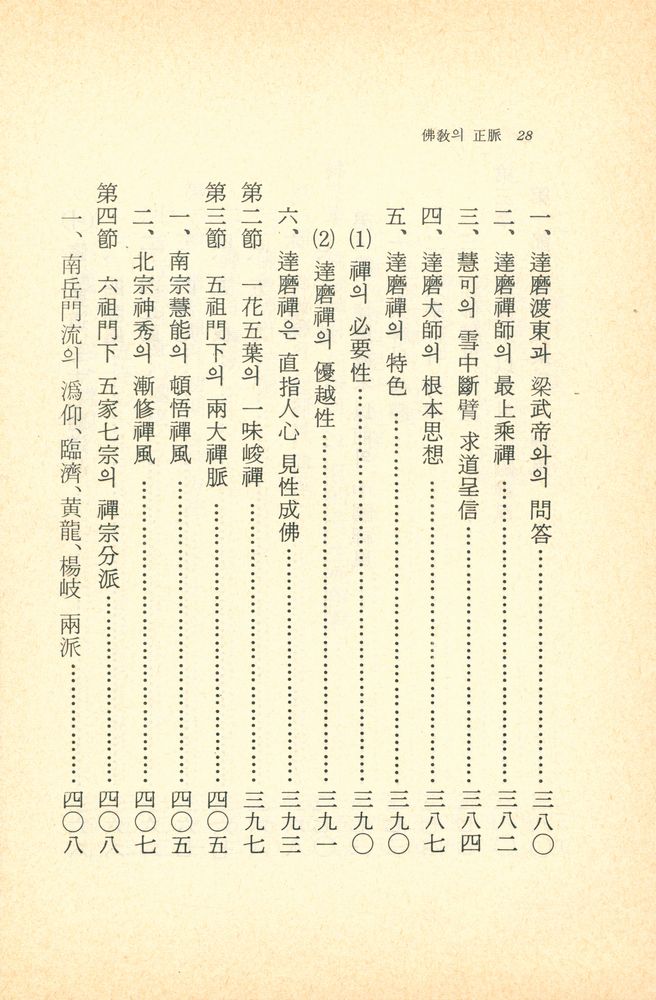 佛敎의 正脈 28
一、達磨渡東과 梁武帝와의 問答 三八〇
二、達磨禪師의 最上乘禪 三八二
三、慧可의 雪中斷臂 求道呈信 三八四
四、達磨大師의 根本思想 三八七
五、達磨禪의 特色 三九〇
⑴ 禪의 必要性 三九〇
⑵ 達磨禪의 優越性 三九一
六、達磨禪은 直指人心 見性成佛 三九三
第二節 一花五葉의 一味峻禪 三九七
第三節 五祖門下의 兩大禪脈 四〇五
一、南宗慧能의 頓悟禪風 四〇五
二、北宗神秀의 漸修禪風 四〇七
第四節 六祖門下 五家七宗의 禪宗分派 四〇八
一、南岳門流의 潙仰、臨濟、黃龍、楊岐 兩派 四〇八